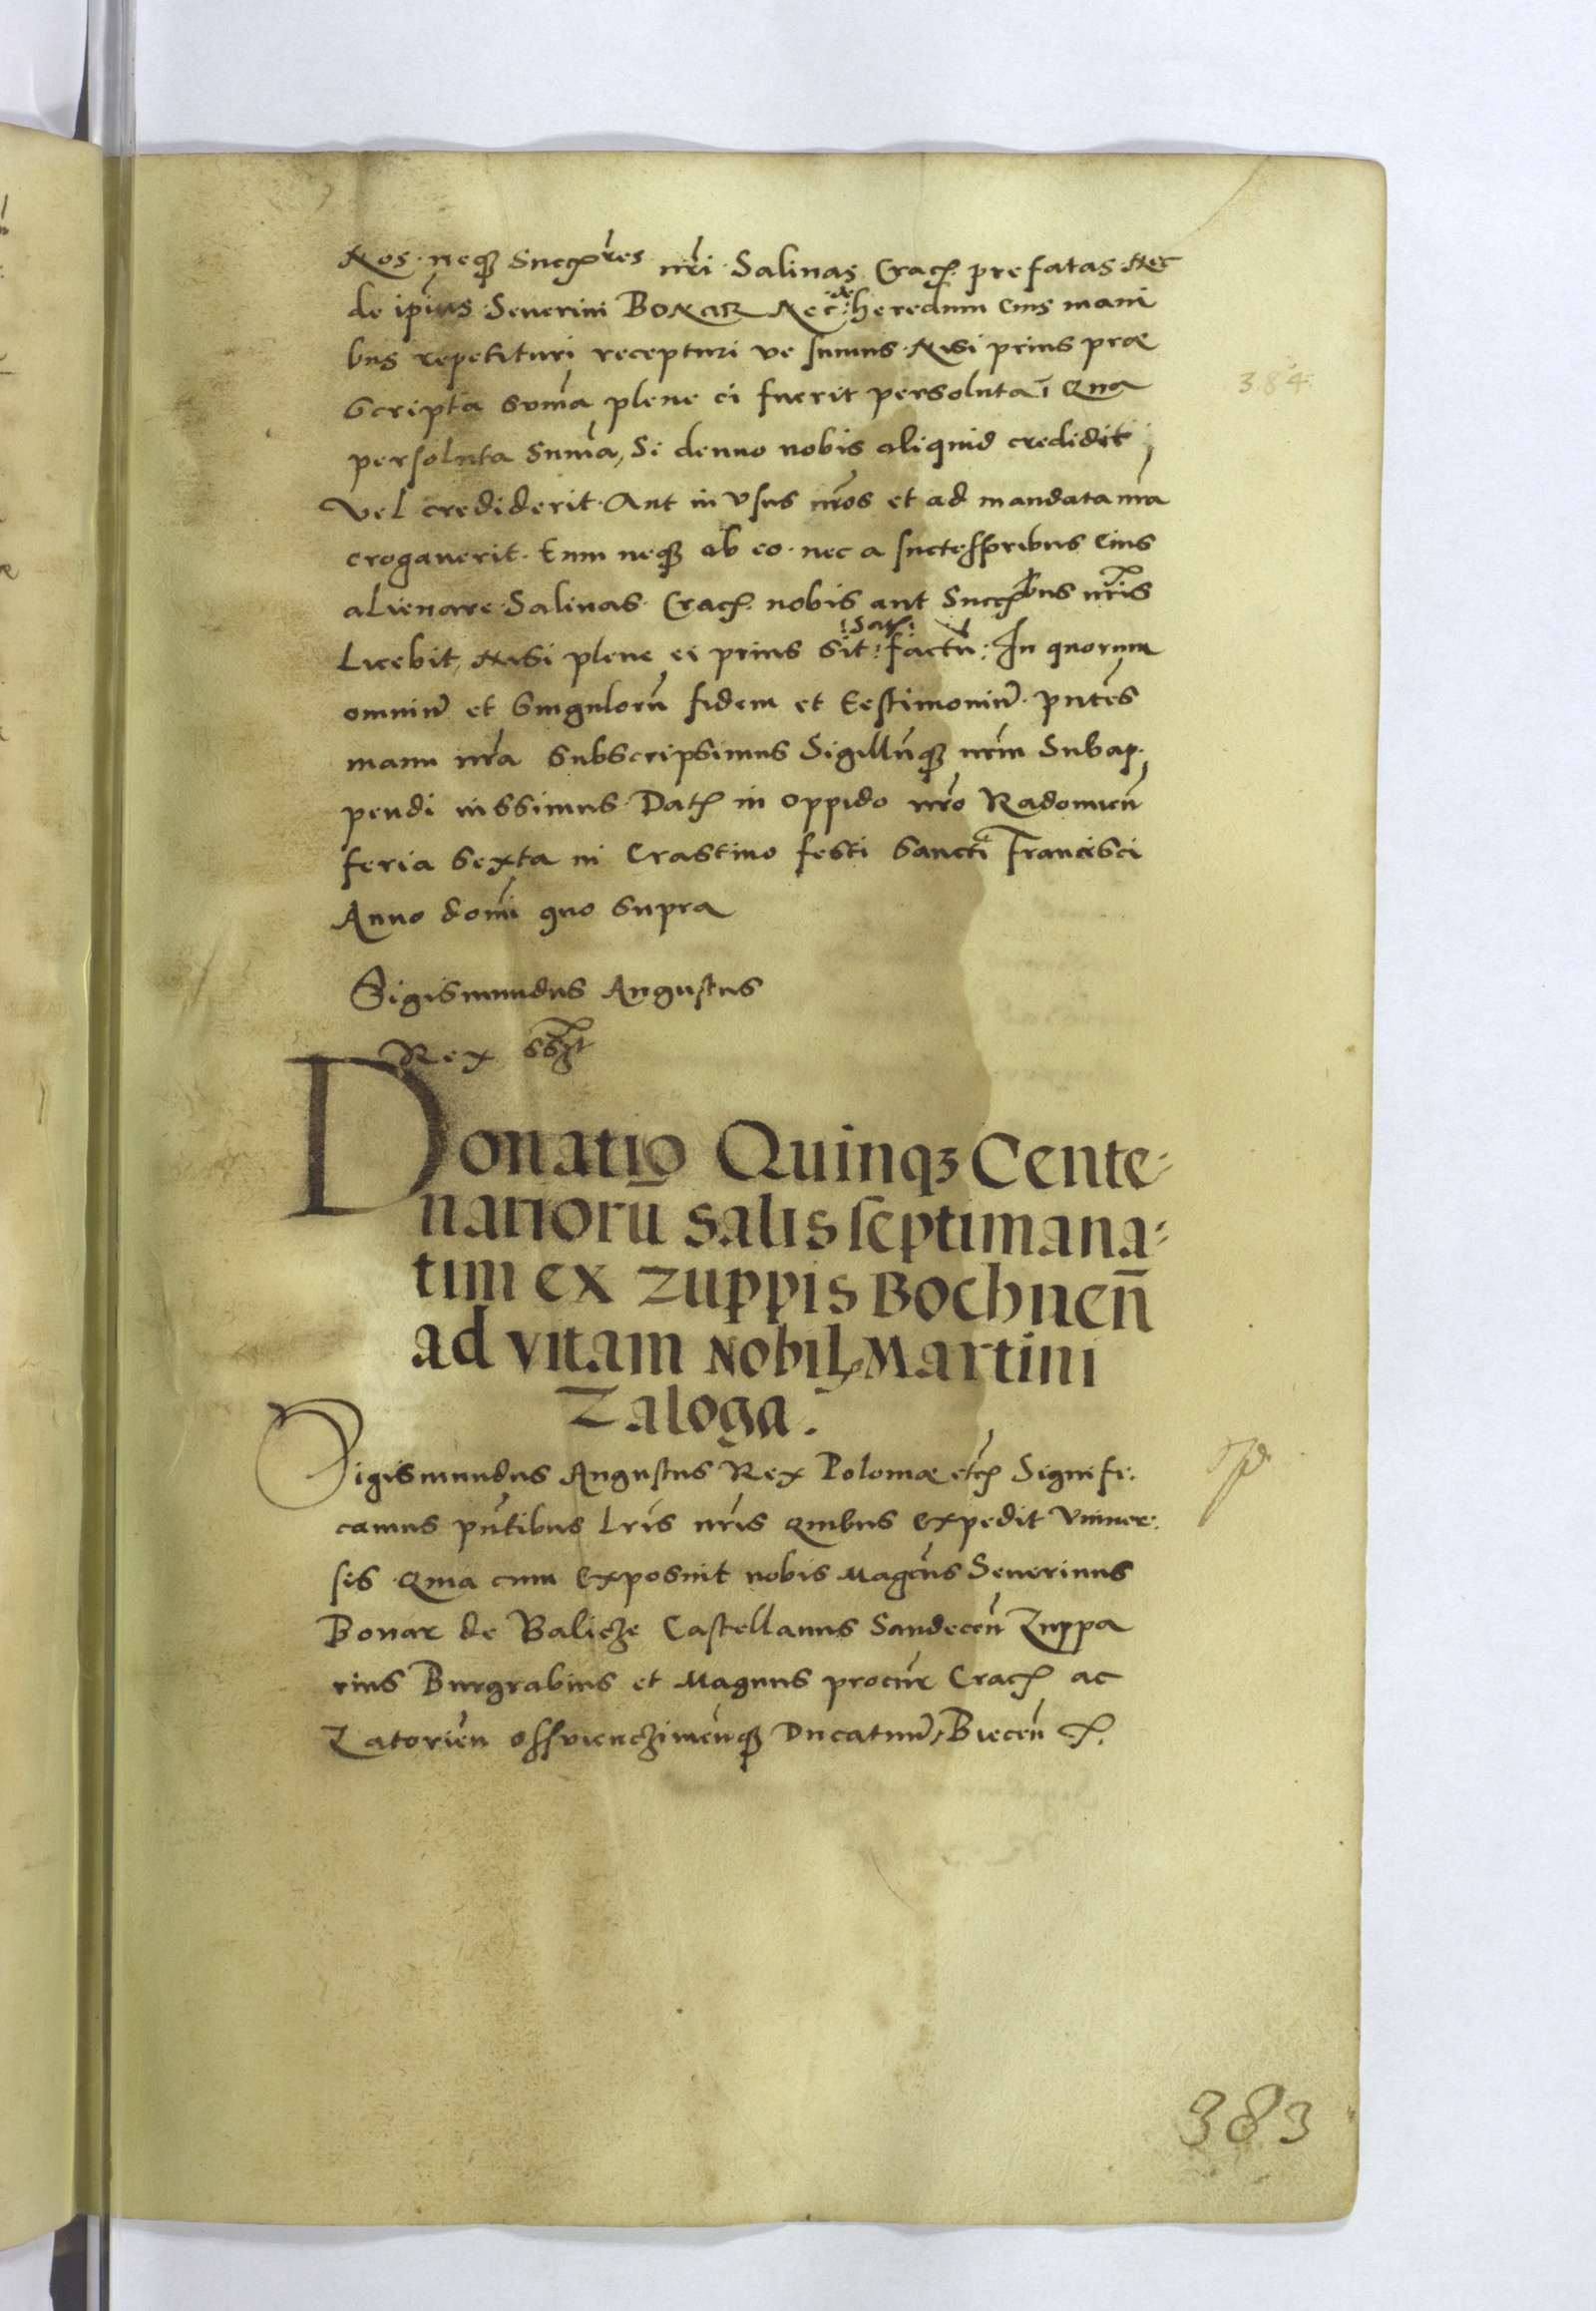 Nos neqʒ Succʳes nri Salinas Cracꝭ prefatas Nec
384
de ipius Severini BONAR Nec de heredum eius mani
bus repetituri recepturi ve sumus Nisi prius præ
scripta suma plene ei fuerit persoluta, Qua
persoluta Suma, Si denuo nobis aliquid credidit
vel crediderit Aut in usus nros et ad mandata nra
erogaverit. Eum neqʒ ab eo nec a successoribus eius
alienare Salinas Cracꝭ nobis aut Succbus nris
Licebit, Nisi plene ei prius sit satꝭ factū. In quorum
omniū et singulorū fidem et testimoniū pntes
manu nra subscripsimus Sigillūqʒ nrm Subap
pendi iussimus. Datꝭ in oppido nro Radomien̄
feria sexta in Crastino festi Sancti Francisci
Anno domi quo supra
Sigismundus Augustus
Rex sszt
Donatio Quinqʒ Cente-
nariorū salis septimana-
tim ex zuppis Bochnen̄
ad vitam Nobilꝭ Martini
Zaloga.
Sigismundus Augustus Rex Poloniæ etcꝭ Signifi-
camus pntibus Lris nris quibus expedit vniver-
sis Quia cum exposuit nobis Magcus Severinus
Bonar de Balicze Castellanus Sandecen̄ Zuppa
rius Burgrabius et Magnus procur Cracꝭ ac
Zatorien̄ Osswienczimen̄qʒ Ducatuū, Biecen̄ ꝛc.
383